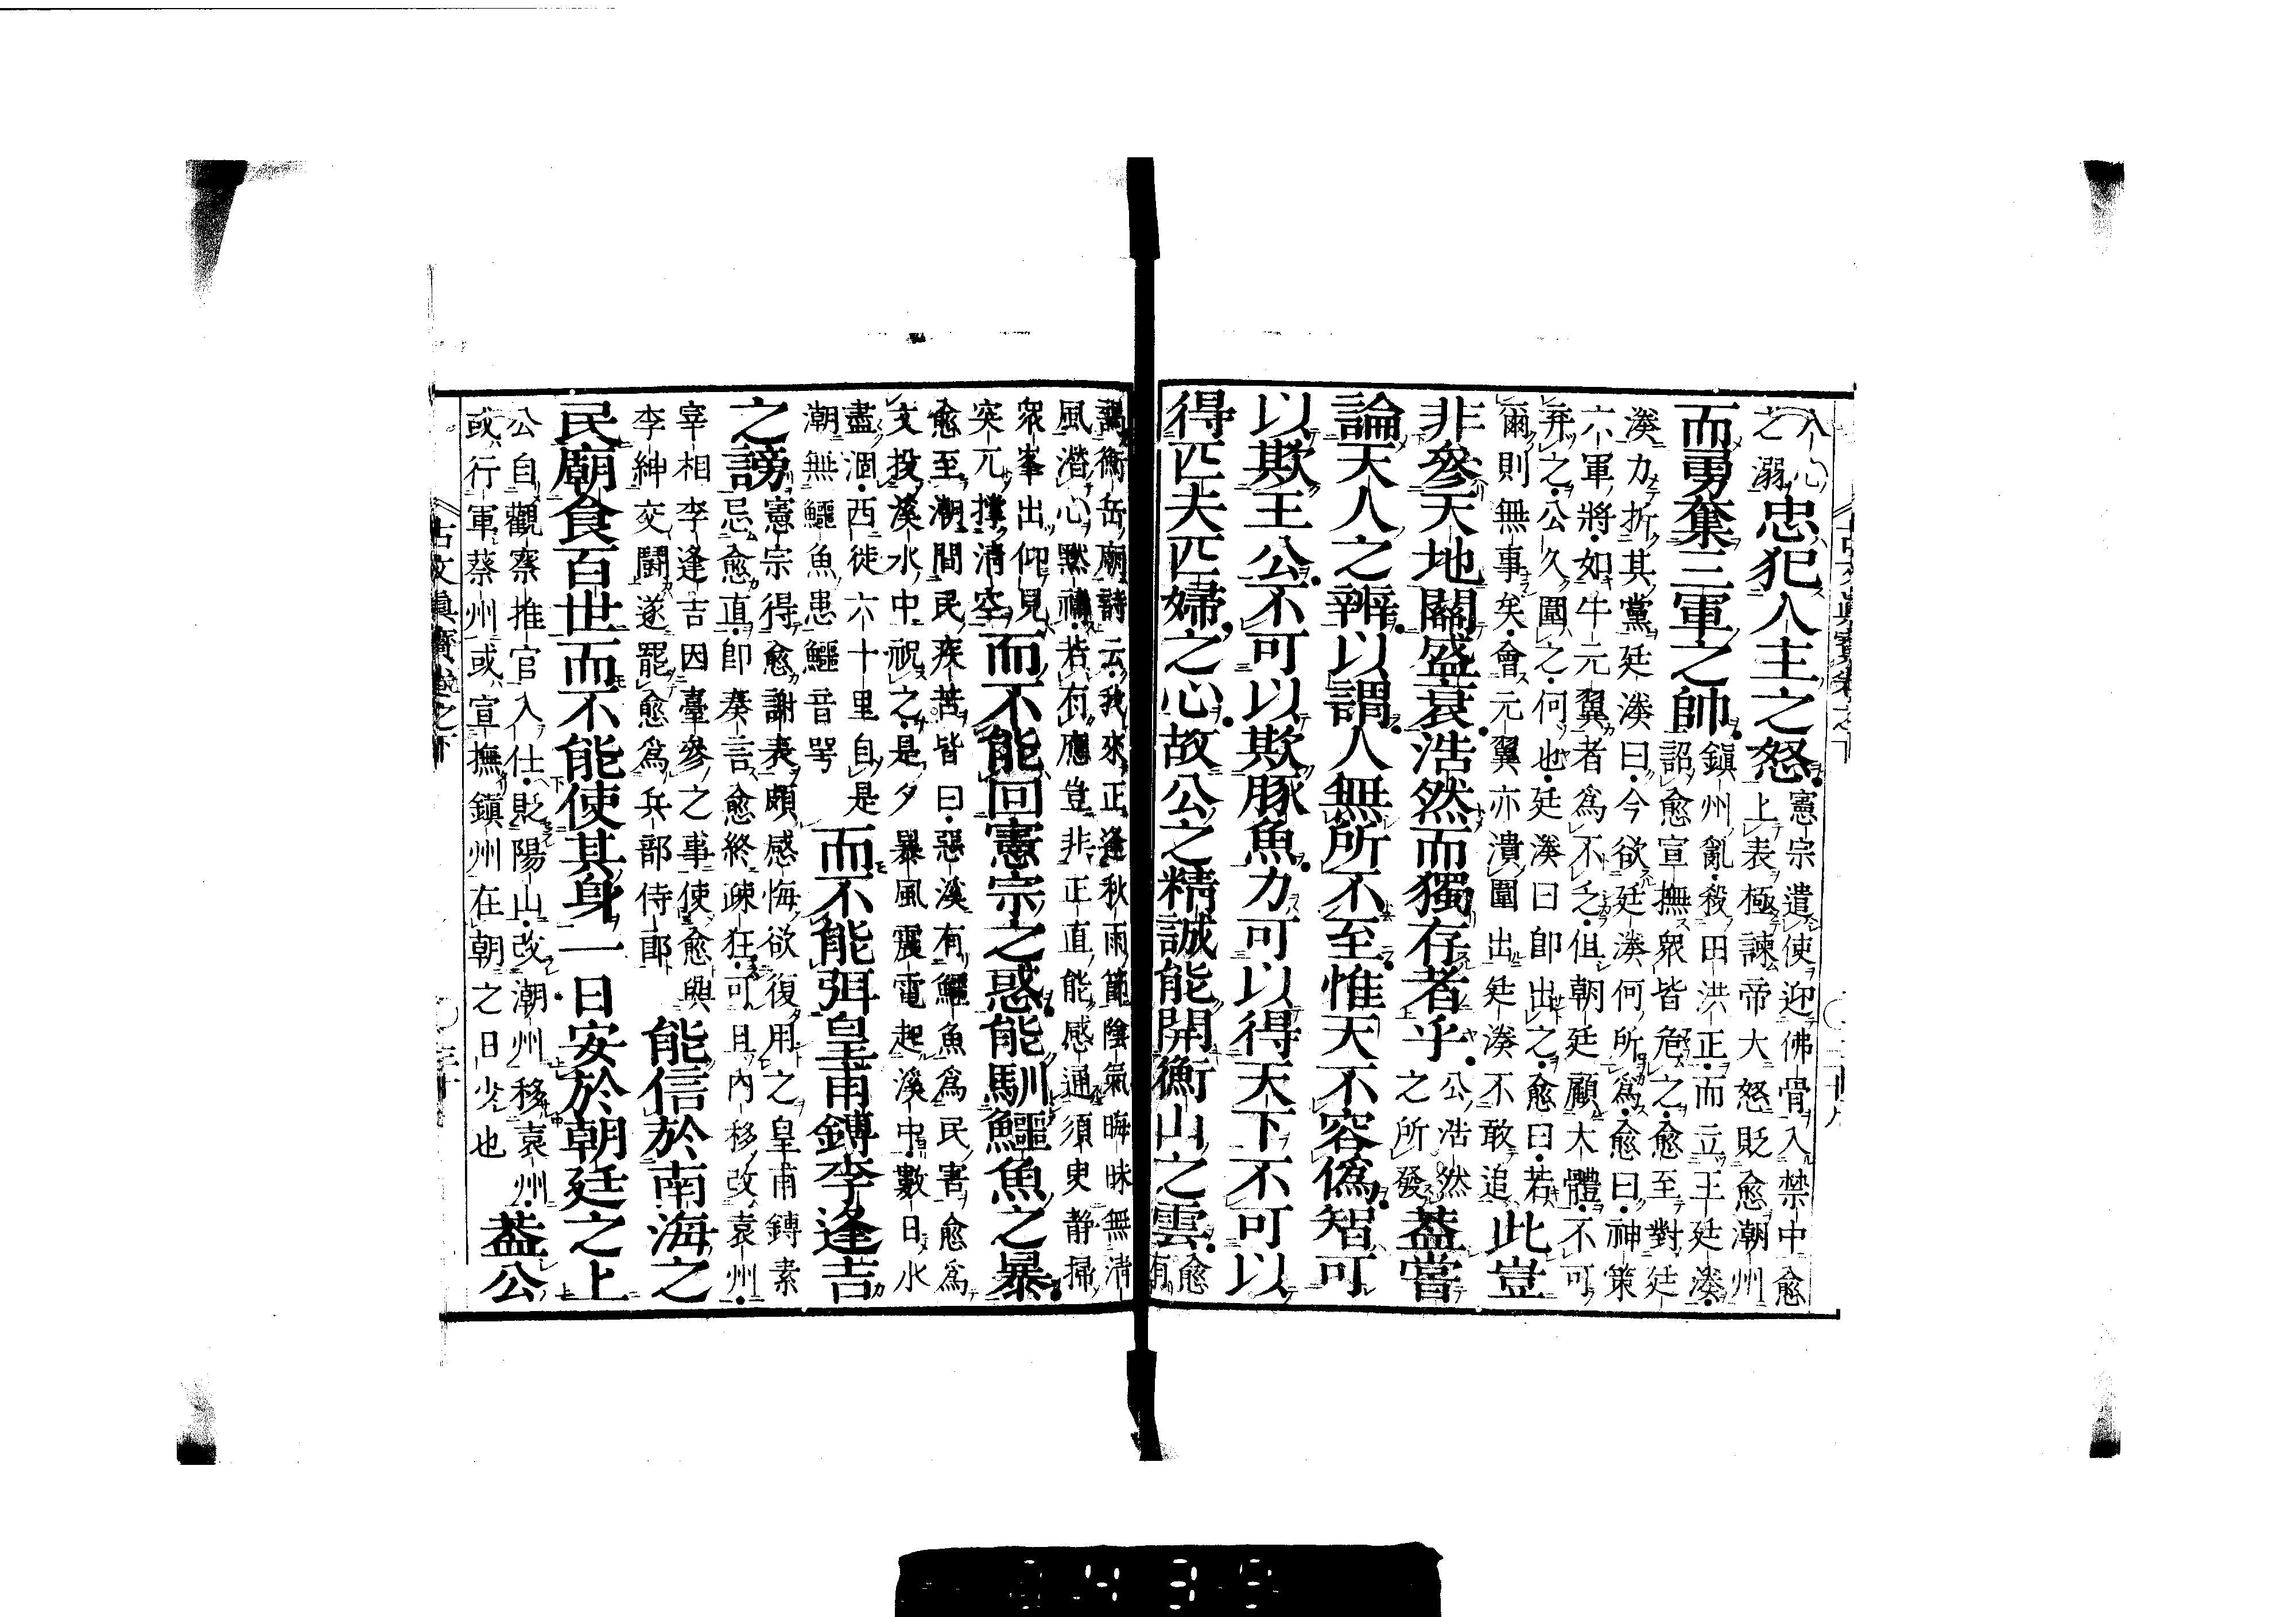 人心之溺忠犯人主之怒憲宗遣使迎佛骨入禁中愈上表極諫帝大怒貶愈潮州
而勇奪三軍之帥鎭州亂殺田洪正而立王廷湊詔愈宣撫衆皆危之愈至對廷
湊力折其黨廷湊曰今欲廷湊何所爲愈曰神策六軍將如牛元翼者爲不乏但朝廷顧大體不可
弃之公久圍之何也廷湊曰卽出之愈曰若爾則無事矣會元翼亦潰圍出廷湊不敢追此豈
非參天地關盛衰浩然而獨存者乎公浩然之所發蓋嘗
論天人之辨以謂人無所不至惟天不容僞智可
以欺王公不可以欺豚魚力可以得天下不可以
得匹夫匹婦之心故公之精誠能開衡山之雲愈有
謁衡岳廟詩云我來正逢秋雨節陰氣晦昧無淸風潛心默禱若有應豈非正直能感通須臾靜掃
衆峯出仰見突兀撑淸空而不能回憲宗之惑能馴鱷魚之暴
愈至潮間民疾苦皆曰惡溪有鱷魚爲民害愈爲文投溪水中祝之是夕暴風震電起溪中數日水
盡涸西徙六十里自是潮無鱷魚患鱷音咢而不能弭皇甫鎛李逢吉
之謗憲宗得愈謝表頗感悔欲復用之皇甫鎛素忌愈直卽奏言愈終疎狂可且內移改袁州
宰相李逢吉因臺參之事使愈與李紳交鬪遂罷愈爲兵部侍郞能信於南海之
民廟食百世而不能使其身一日安於朝廷之上
公自觀察推官入仕貶陽山改潮州移袁州或行軍蔡州或宣撫鎭州在朝之日少也蓋公
古文眞寶卷之下